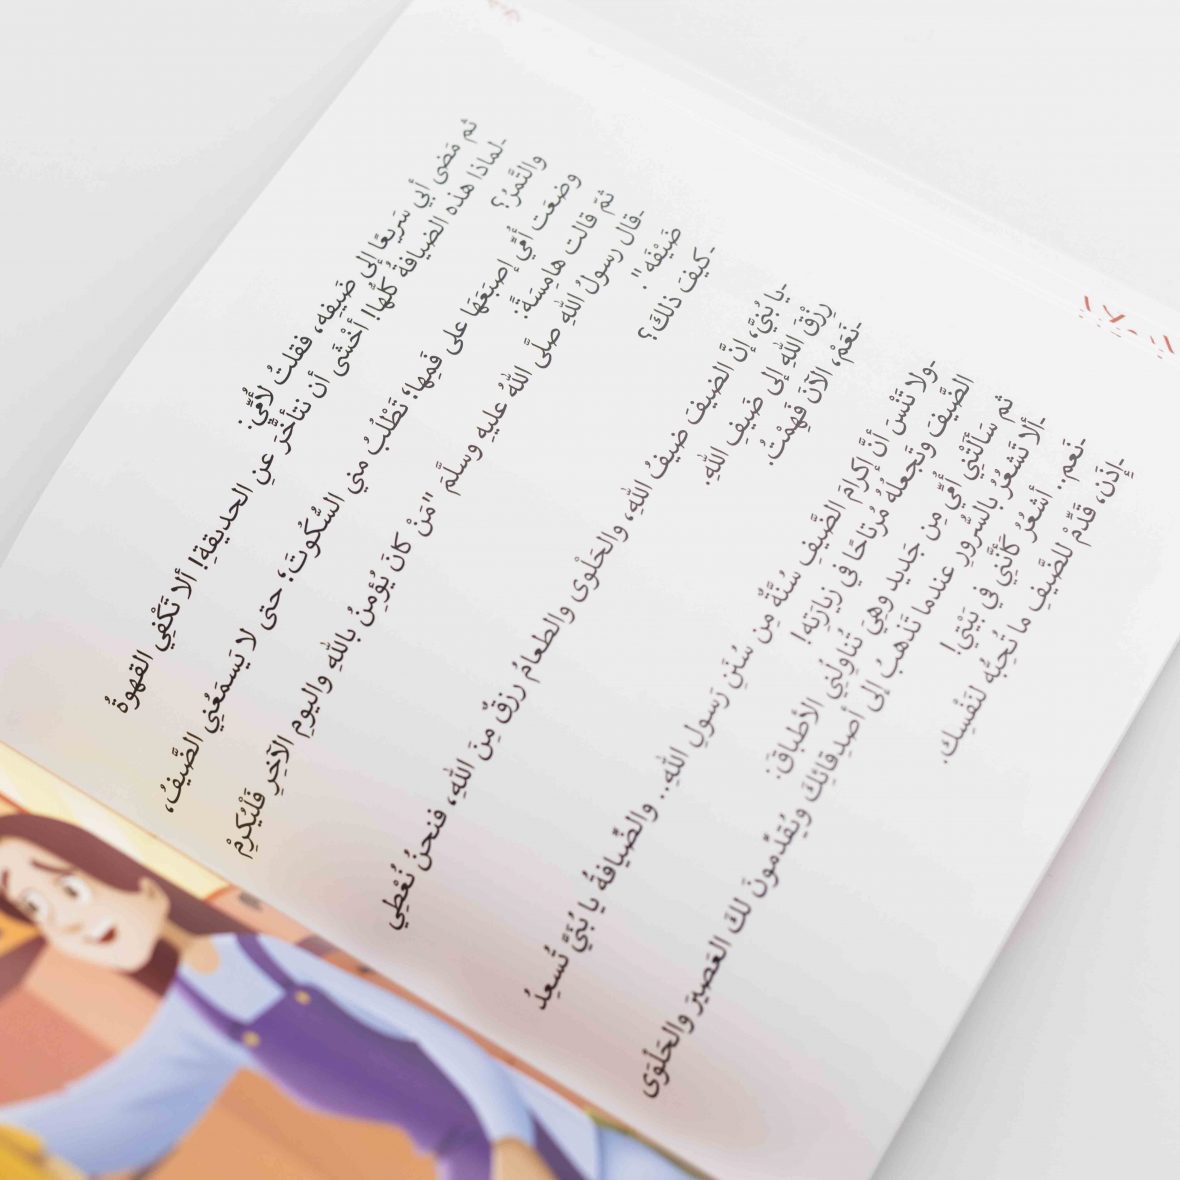 ثم مَضى أبي سَريعًا إلى ضَيفِه، فقلتُ لأُمِّي:
-لماذا هذه الضيافةُ كُلُّها! أخْشَى أن نتأخَّرَ عنِ الحديقةِ! ألا تَكْفِي القهوةُ
والتَّمرُ؟
وضعَت أُمِّي إصبَعَهَا على فَمِها؛ تَطْلُبُ مني السُّكوتَ؛ حتى لا يَسمَعُنِي الضَّيفُ،
ثمّ قالت هامِسَةً:
-قال رسولُ اللهِ صلَّى اللهُ عليهِ وسلَّمَ "مَنْ كانَ يُؤمِنُ باللهِ واليومِ الآخِرِ فَلْيُكرِمْ
ضَيْفَه".
-كيفَ ذلكَ؟
-يا بُنيَّ، إنَّ الضيفَ ضيفُ اللهِ، والحَلْوى والطعامُ رزقٌ مِنَ اللهِ، فنحنُ نُعْطِي
رِزْقَ اللهِ إلى ضَيفِ اللهِ.
-نَعَمْ، الآنَ فَهِمْتُ.
-ولا تَنْسَ أنَّ إكرامَ الضَّيفِ سُنَّةٌ مِن سُنَنِ رَسولِ اللهِ.. والضِّيافةُ يا بُنَيَّ تُسعِدُ
الضَّيفَ وتَجعلُهُ مُرتاحًا في زيارَتِه!
ثم سَألَتْني أُمِّي مِن جَديد وهيَ تُناوِلُنِي الأطباقَ:
-ألا تَشعُرُ بالسُّرورِ عندما تَذهبُ إلى أصدِقائِكَ ويُقدِّمونَ لكَ العَصيرَ والحَلْوَى
-نَعَم.. أشعُرُ كأنَّنِي في بَيْتِي!
-إذَن، قَدِّمْ للضَّيفِ ما تُحِبُّه لنَفْسِك.